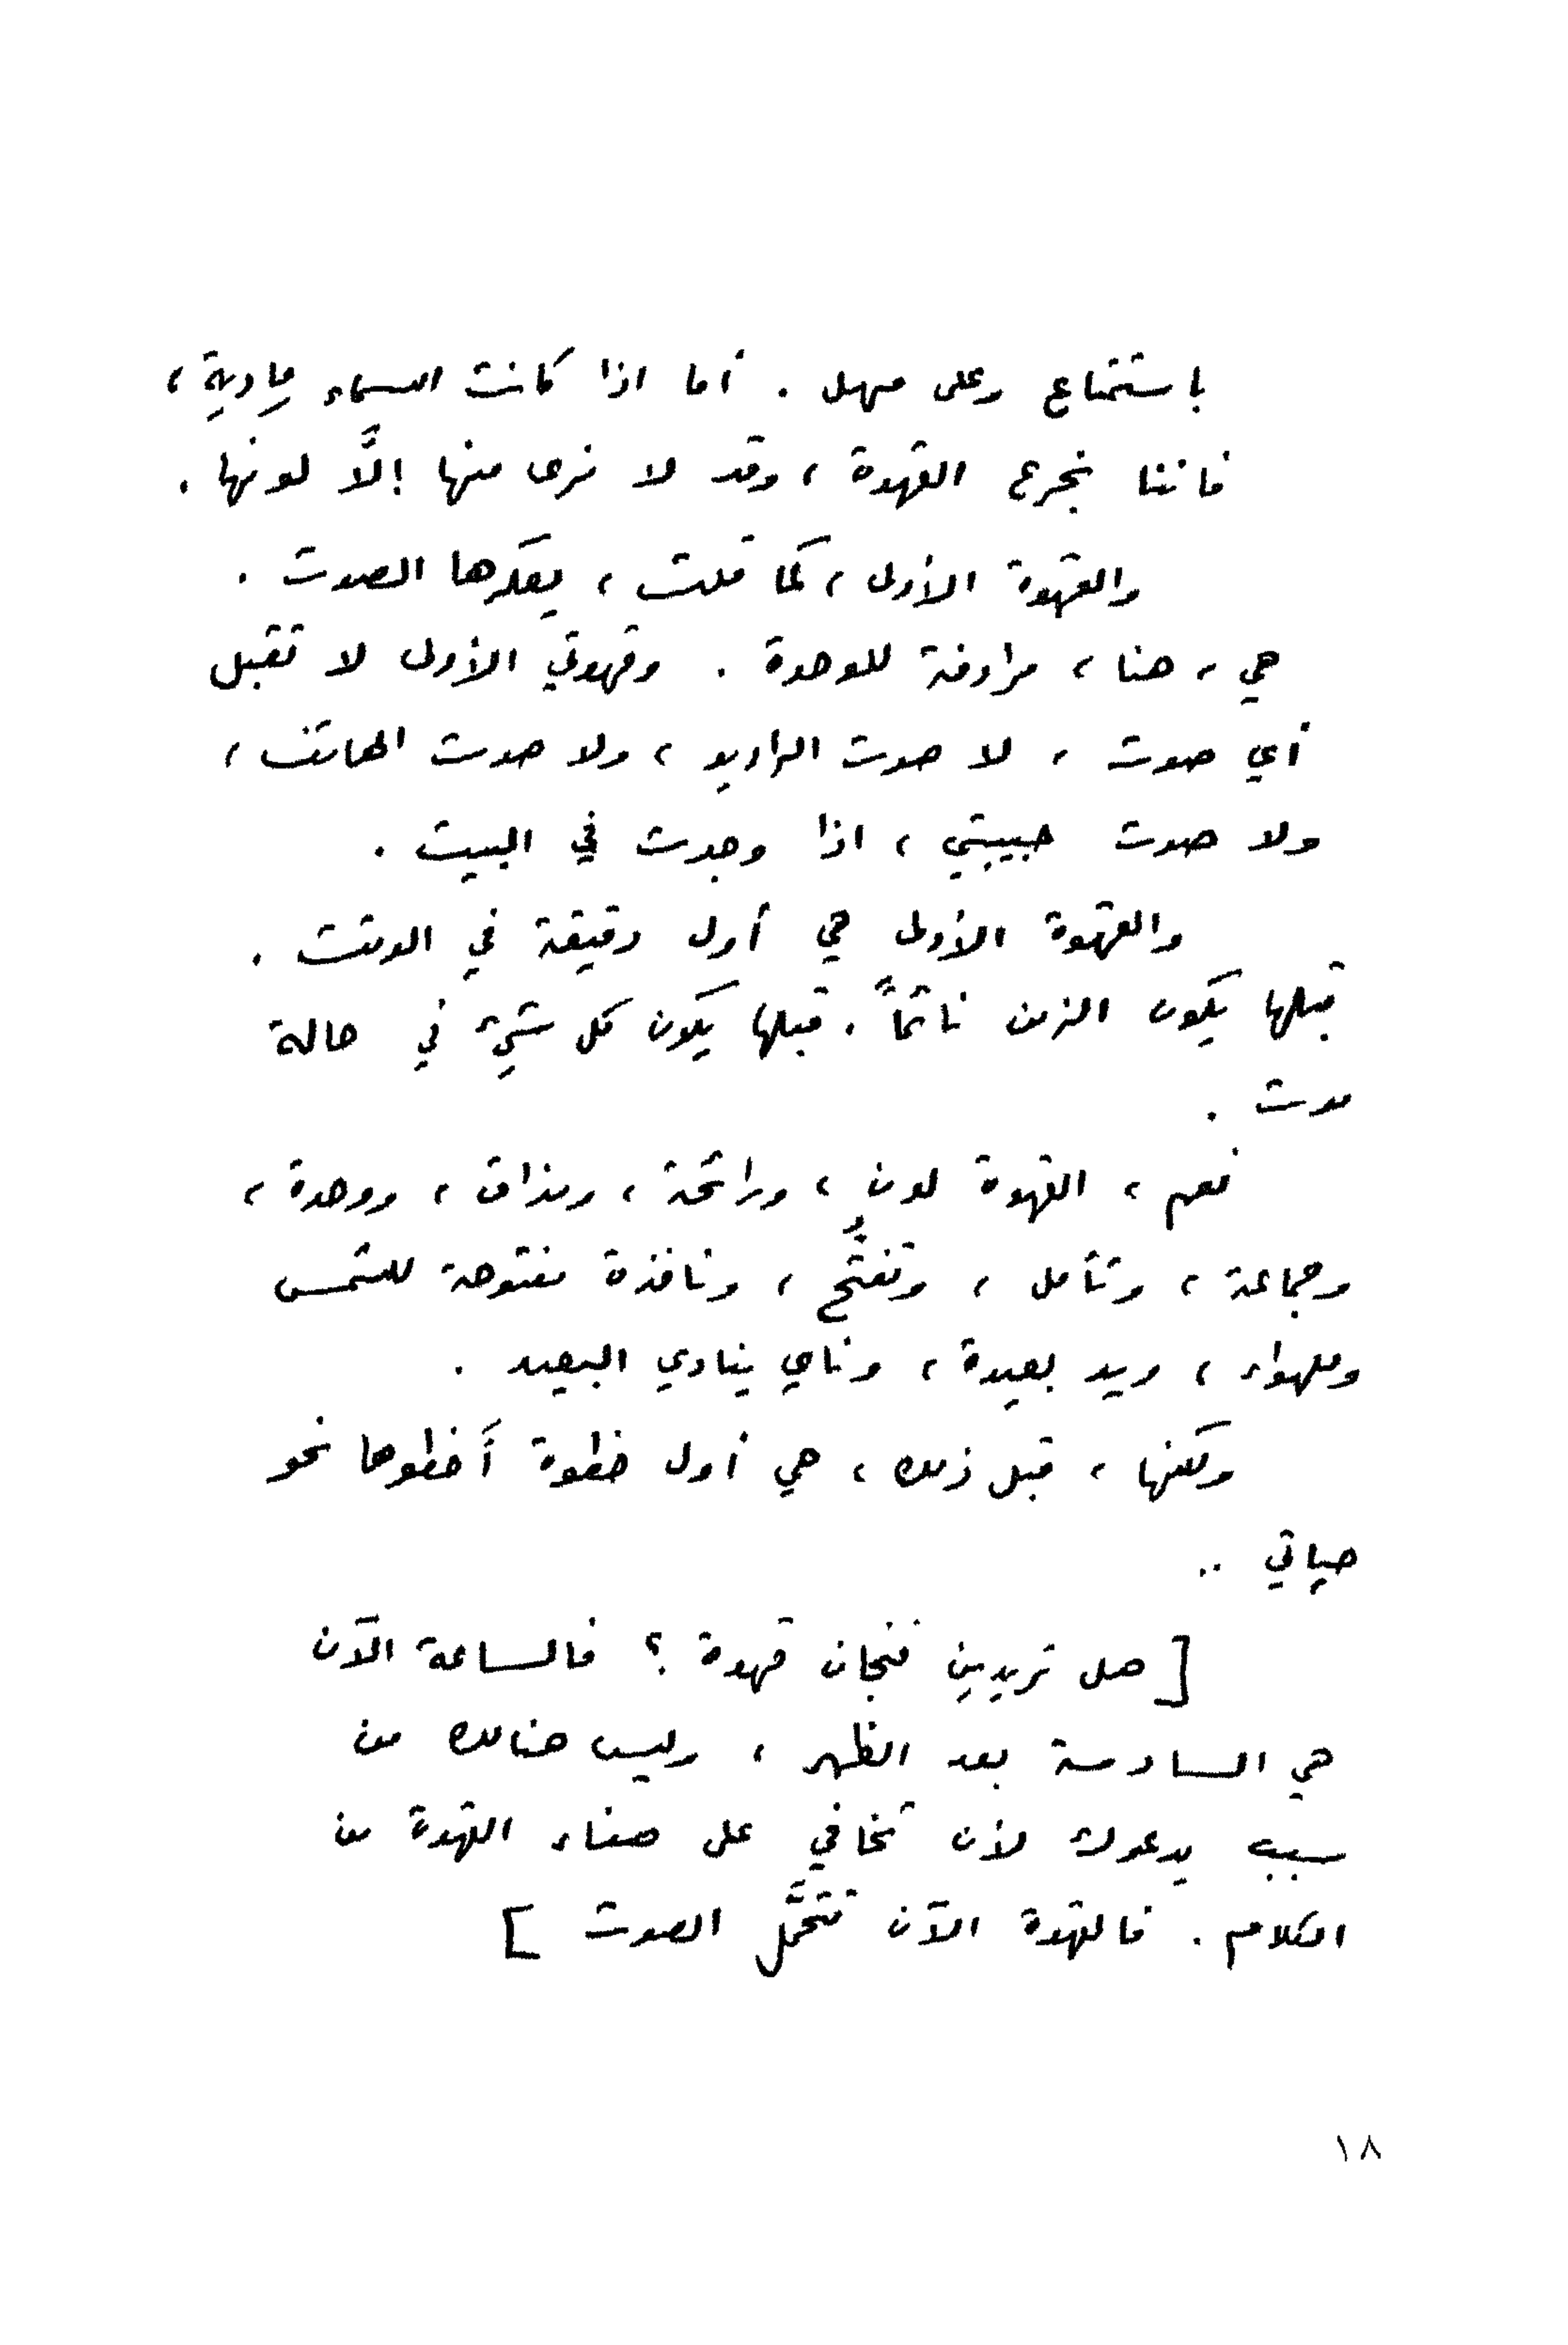 باستمتاع وعلى مهل . أما اذا كانت السماء عادية ،
فاننا نجرع القهوة ، وقد لا نرى منها إلَّا لونها .
والقهوة الأولى ، كما قلت ، يعكرها الصوت .
هي ، هنا ، مرادفة للوحدة . وقهوتي الأولى لا تقبل
أي صوت ، لا صوت الراديو ، ولا صوت الهاتف ،
ولا صوت حبيبتي ، اذا وجدت في البيت .
والقهوة الأولى هي أول دقيقة في الوقت .
قبلها يكون الزمن نائماً . قبلها يكون كل شيء في حالة
موت .
نعم ، القهوة لون ، ورائحة ، ومذاق ، ووحدة ،
وجماعة ، وتأمل ، وتفتُّح ، ونافذة مفتوحة للشمس
وللهواء ، ويد بعيدة ، وناي ينادي البعيد .
ولكنها ، قبل ذلك ، هي أول خطوة أَخطوها نحو
حياتي ..
[ هل تريدين فنجان قهوة ؟ فالساعة الآن
هي السادسة بعد الظهر ، وليس هنالك من
سبب يدعوك لأن تخافي على صفاء القهوة من
الكلام . فالقهوة الآن تتحمَّل الصوت ]
١٨